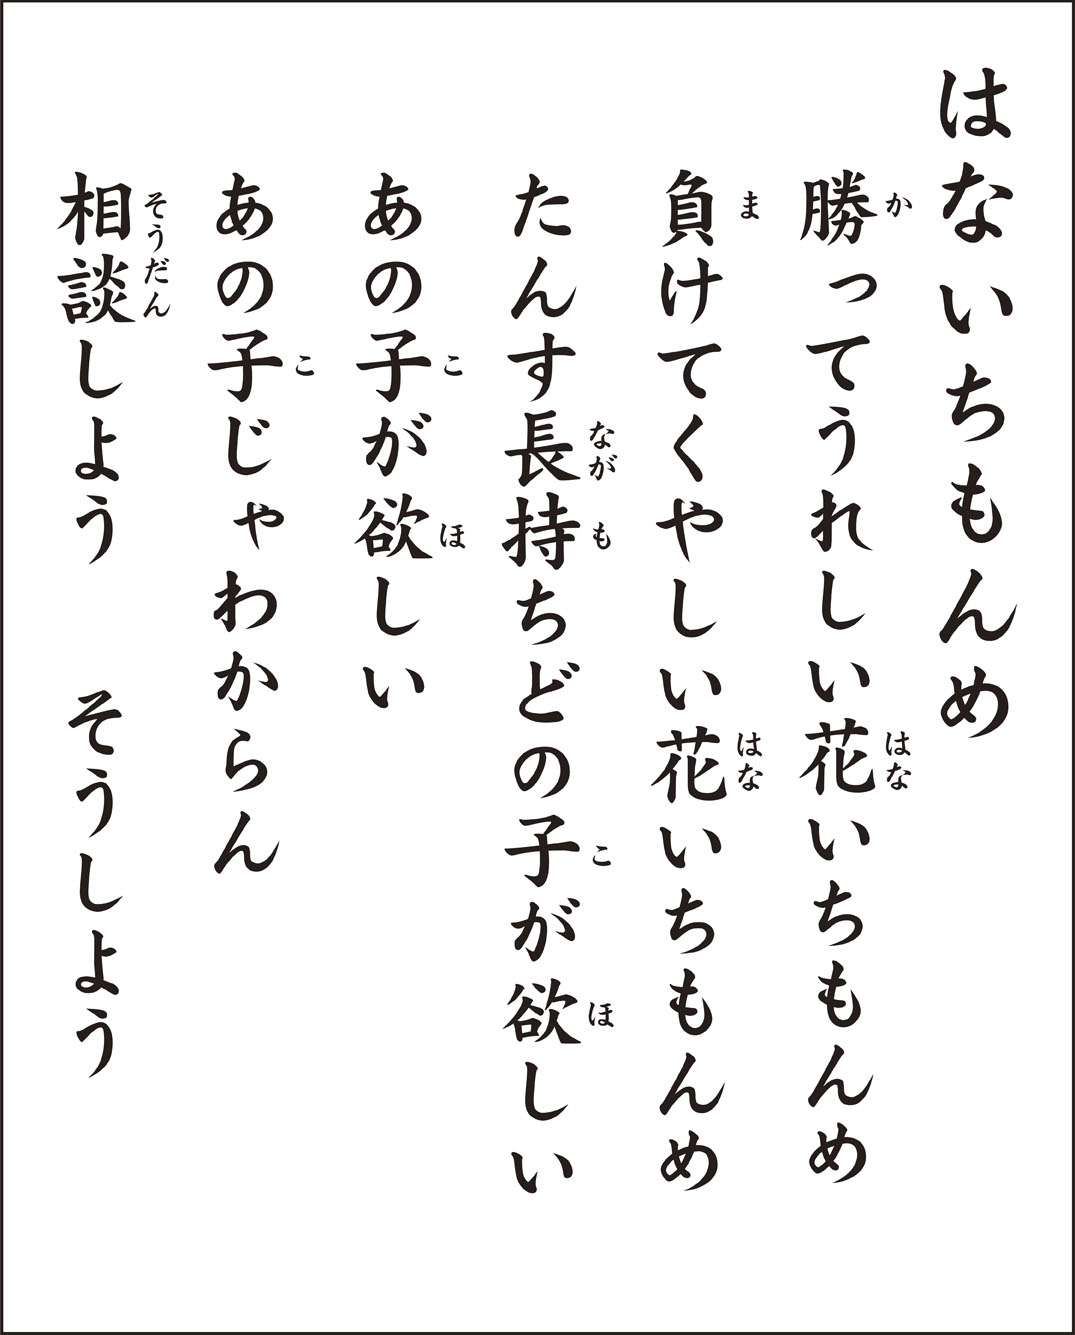 はないちもんめ
勝ってうれしい花いちもんめ
負けてくやしい花いちもんめ
たんす長持ちどの子が欲しい
あの子が欲しい
あの子じゃわからん
相談しよう　そうしよう